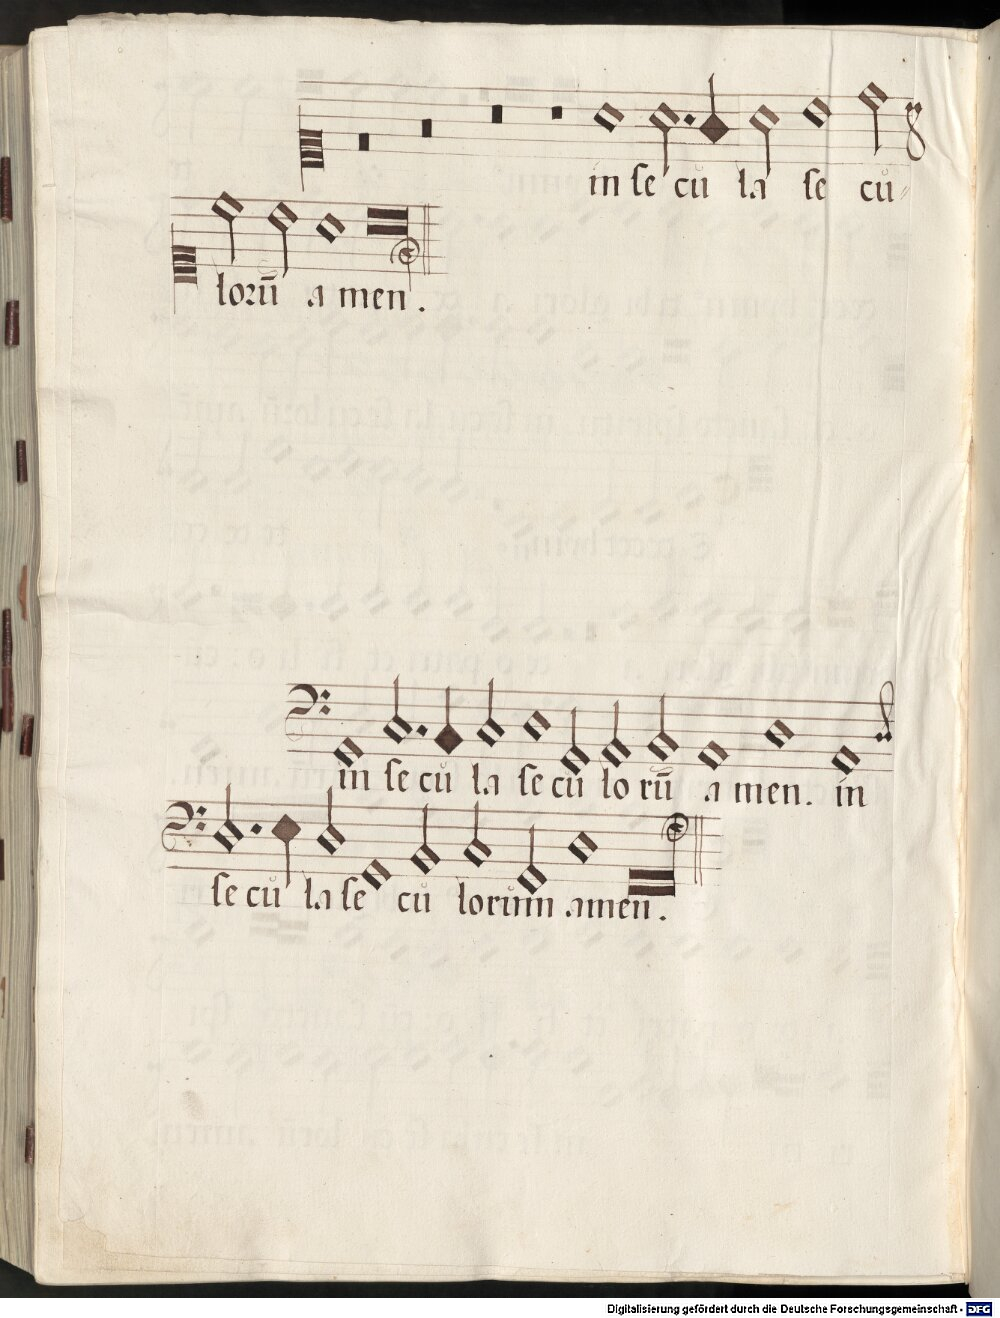 in se cū la se cu-
lorū a men.
in se cū la se cū lo rū a men. in
se cū la se cū lorum amen.
Digitalisierung gefördert durch die Deutsche Forschungsgemeinschaft - DFG